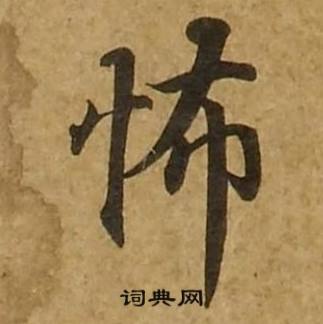 怖
词典网